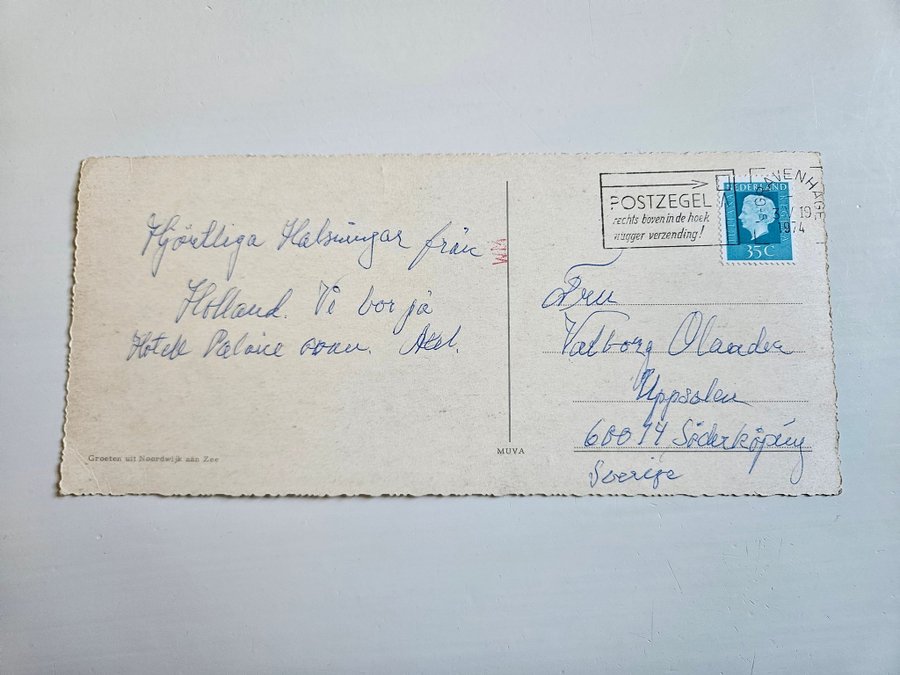 Hjärtliga Hälsningar från
Holland. Vi bor på
Hotell Palace ovan. Axel.
Groeten uit Noordwijk aan Zee
MUVA
POSTZEGEL
rechts boven in de hoek
vlugger verzending!
'S-GRAVENHAGE
19
1974
NEDERLAND
35C
Fru
Valborg Olander
Uppsalen
600 14 Söderköping
Sverige